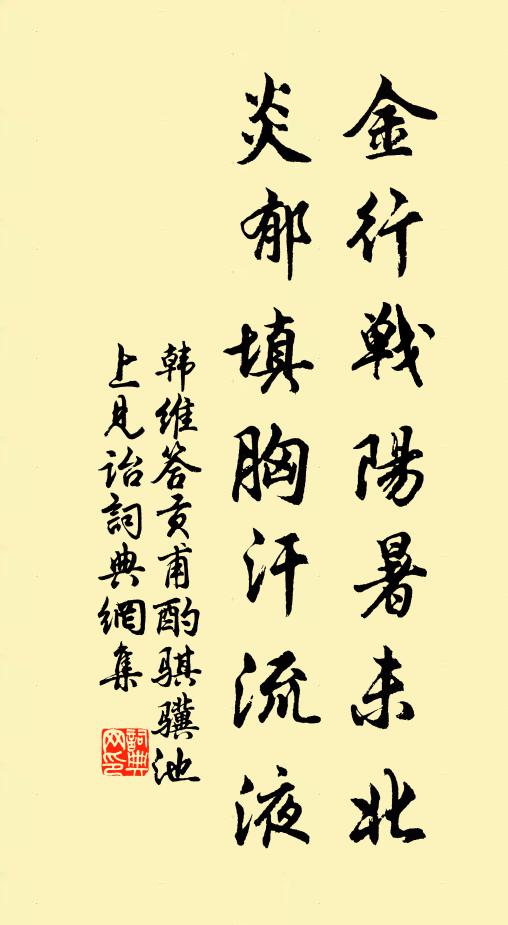 金行戦陽暑未北
炎郁填胸汗流液
韩维答贡甫酌骐骥池
上见诒詞典網集
詞典
网印